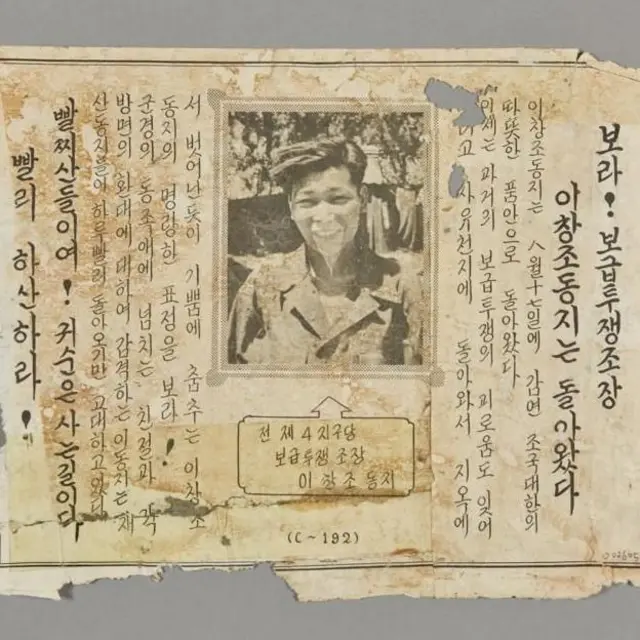 보라! 보급투쟁조장
이창조동지는 돌아왔다
이창조동지는 八월十七일에 감면 조국대한의
따뜻한 품안으로 돌아왔다
이제는 과거의 보급투쟁의 괴로움도 잊어
자유천지에 돌아와서 지옥에
서 벗어난듯이 기쁨에 춤추는 이창조
동지의 명랑한 표정을 보라!
군경의 동족애에 넘치는 친절과 각
방면의 환대에 대하여 감격하는 이동지는 재
산동지들이 하루빨리 돌아오기만 고대하고 있다
빨찌산들이여! 귀순은 사는길이다
빨리 하산하라!
전 제4지구당
보급투쟁 조장
이창조 동지
(C~192)